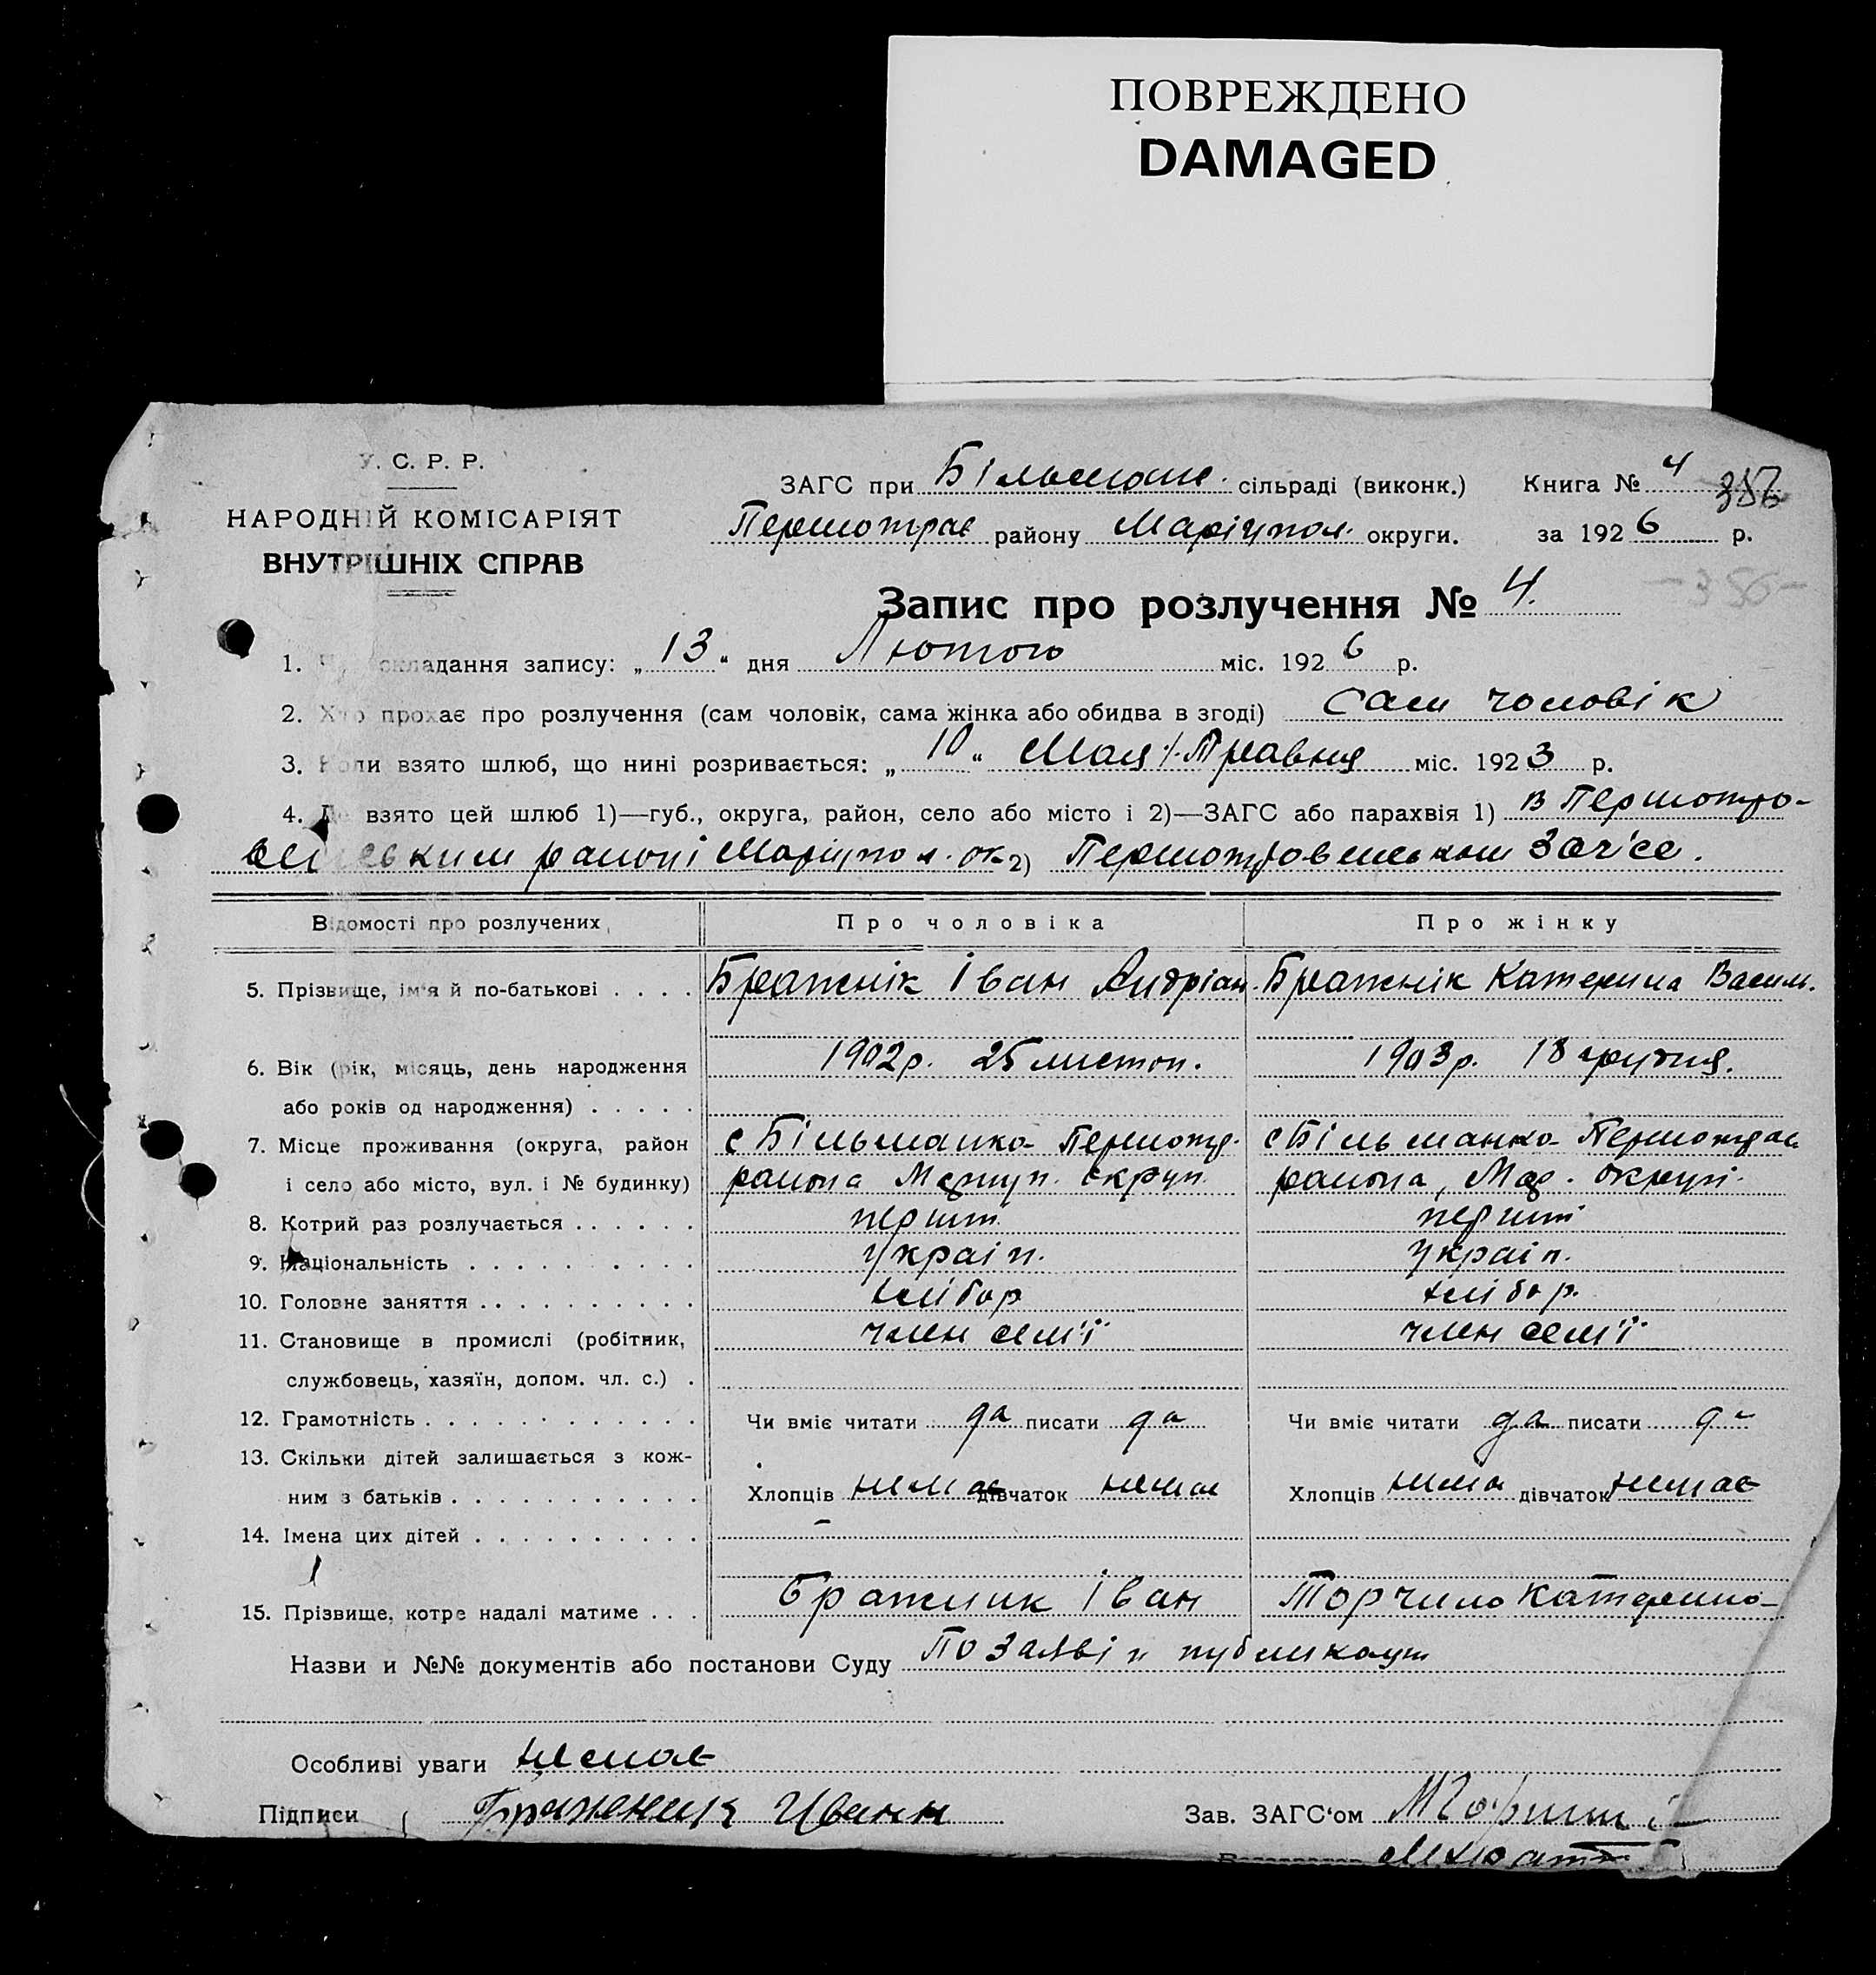 ПОВРЕЖДЕНО
DAMAGED
У. С. Р. Р.
НАРОДНІЙ КОМІСАРІЯТ
ВНУТРІШНІХ СПРАВ
ЗАГС при Більман. сільраді (виконк.) Книга № 4 356
району Маріупол. округи. за 1926 р.
- 356 -
Запис про розлучення № 4.
1. складання запису: „13“ дня Лютого міс. 1926 р.
2. Хто прохає про розлучення (сам чоловік, сама жінка або обидва в згоді) сам чоловік
3. Коли взято шлюб, що нині розривається: „10“ Мая/Травня міс. 1923 р.
4. Де взято цей шлюб 1)—губ., округа, район, село або місто і 2)—ЗАГС або парахвія 1) в
районі Маріупол. ок. 2) Загсе.
Відомості про розлучених Про чоловіка Про жінку
5. Прізвище, ім'я й по-батькові . . . . Бражнік Іван Андріан. Бражнік Катерина Василь.
6. Вік (рік, місяць, день народження 1902 р. 25 листоп. 1903 р. 18 грудня.
або років од народження) . . . . .
7. Місце проживання (округа, район с Більманка с Більманка
і село або місто, вул. і № будинку) района Окруи. района, Мар. Окруи.
8. Котрий раз розлучається . . . . . . перши перши
9. Національність . . . . . . . . . . Україн. Україн.
10. Головне заняття . . . . . . . . . . хлібор хлібор.
11. Становище в промислі (робітник, член семʼї член семʼї
службовець, хазяїн, допом. чл. с.) .
12. Грамотність . . . . . . . . . . . . Чи вміє читати да писати да Чи вміє читати да писати да
13. Скільки дітей залишається з кож-
ним з батьків . . . . . . . . . . . Хлопців немає дівчаток немає Хлопців нема дівчаток немає
14. Імена цих дітей . . . . . . . . . .
15. Прізвище, котре надалі матиме . . . Бражник Іван Торчило Катерина
Назви и №№ документів або постанови Суду По заяві и
Особливі уваги немає
Підписи Бражник Иван Зав. ЗАГС'ом